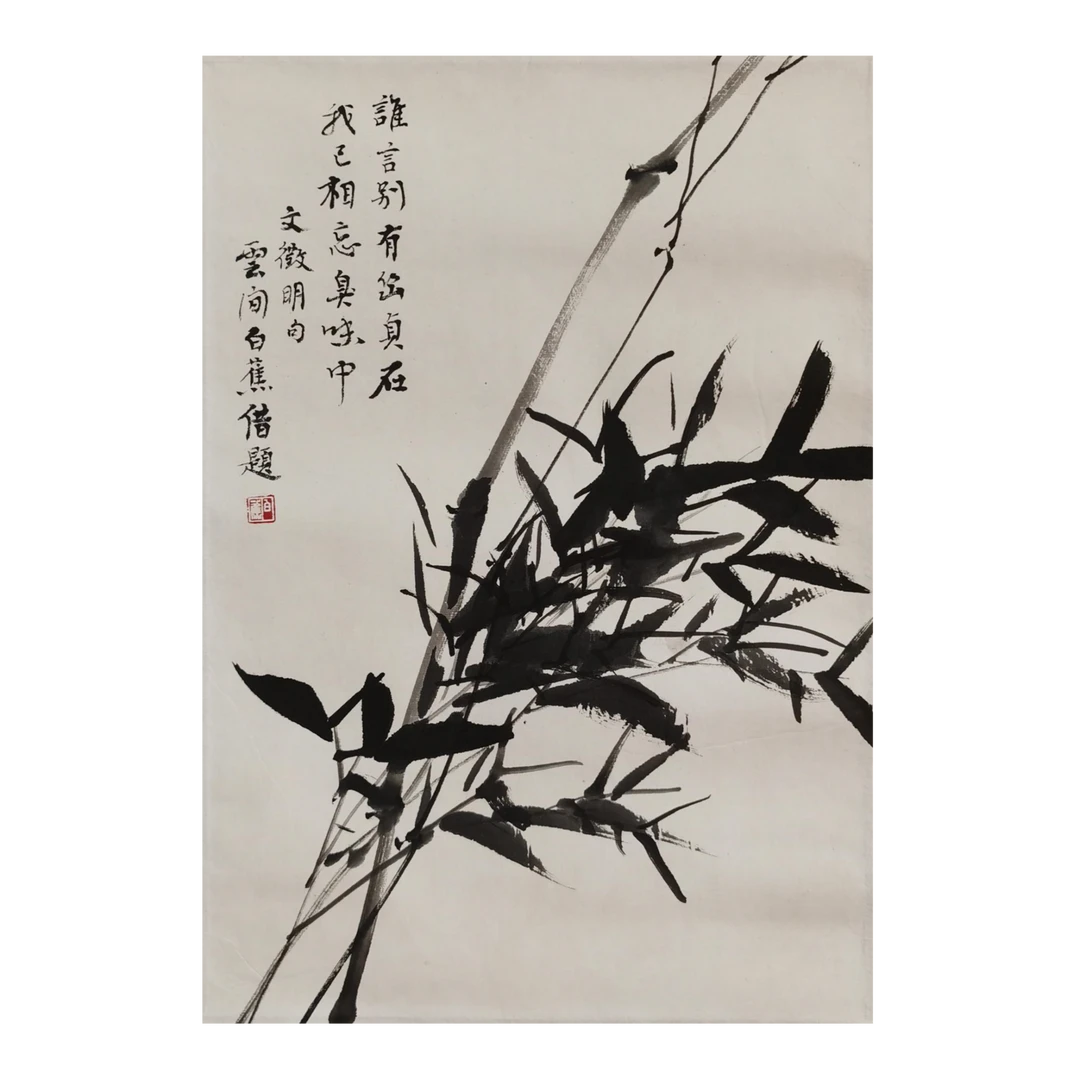 誰言别有幽貞在
我已相忘臭味中
文徵明句
雲間白蕉借題
白蕉